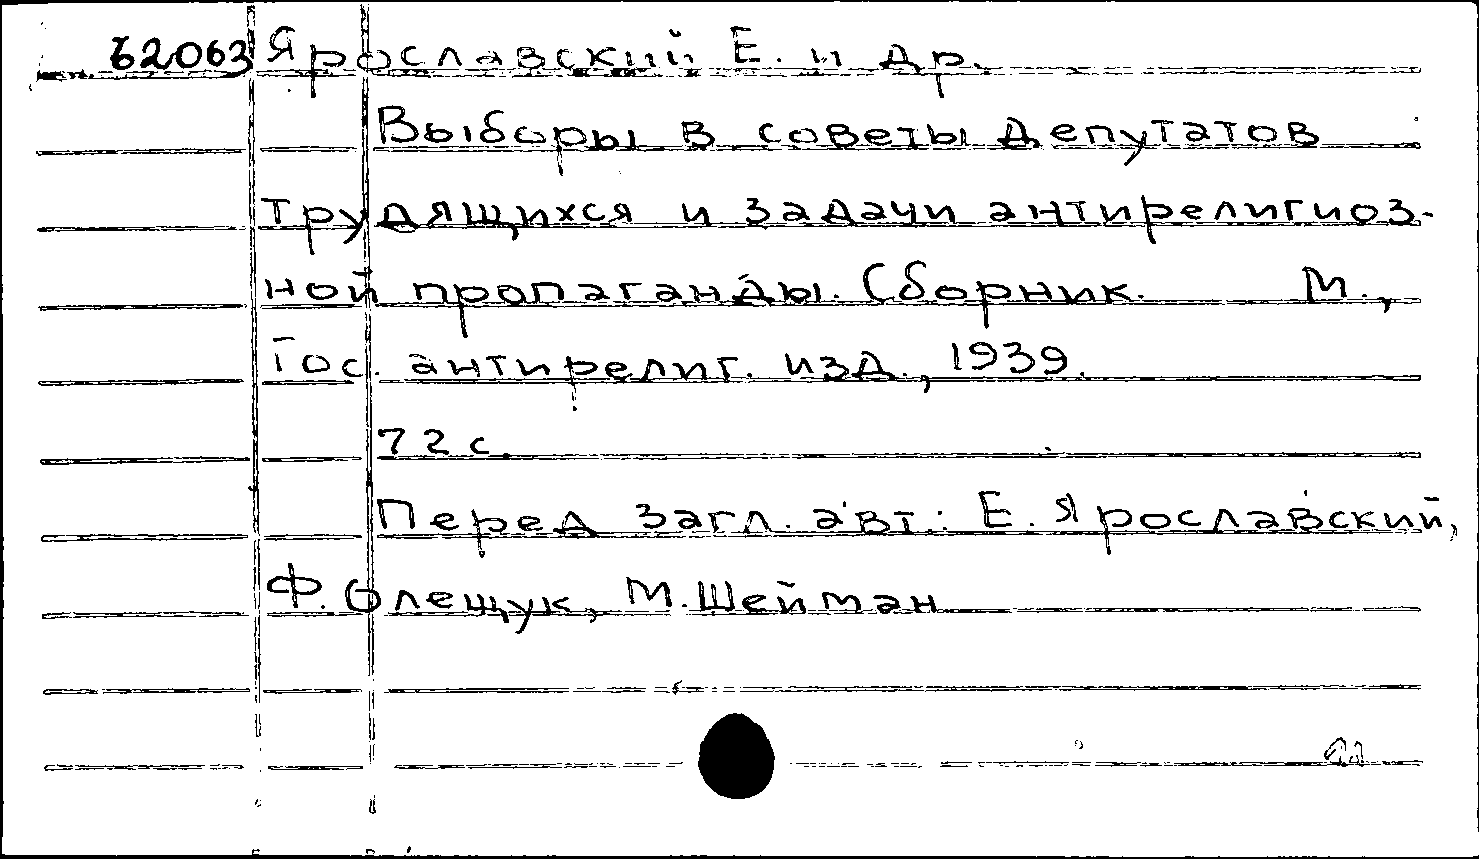 62063 Ярославский Е. и др.
Выборы в советы депутатов
трудящихся и задачи антирелигиоз-
ной пропаганды. Сборник. М.,
Гос. антирелиг. изд., 1939.
72 с.
Перед загл. авт.: Е. Ярославский,
Ф. Олещук, М. Шейман